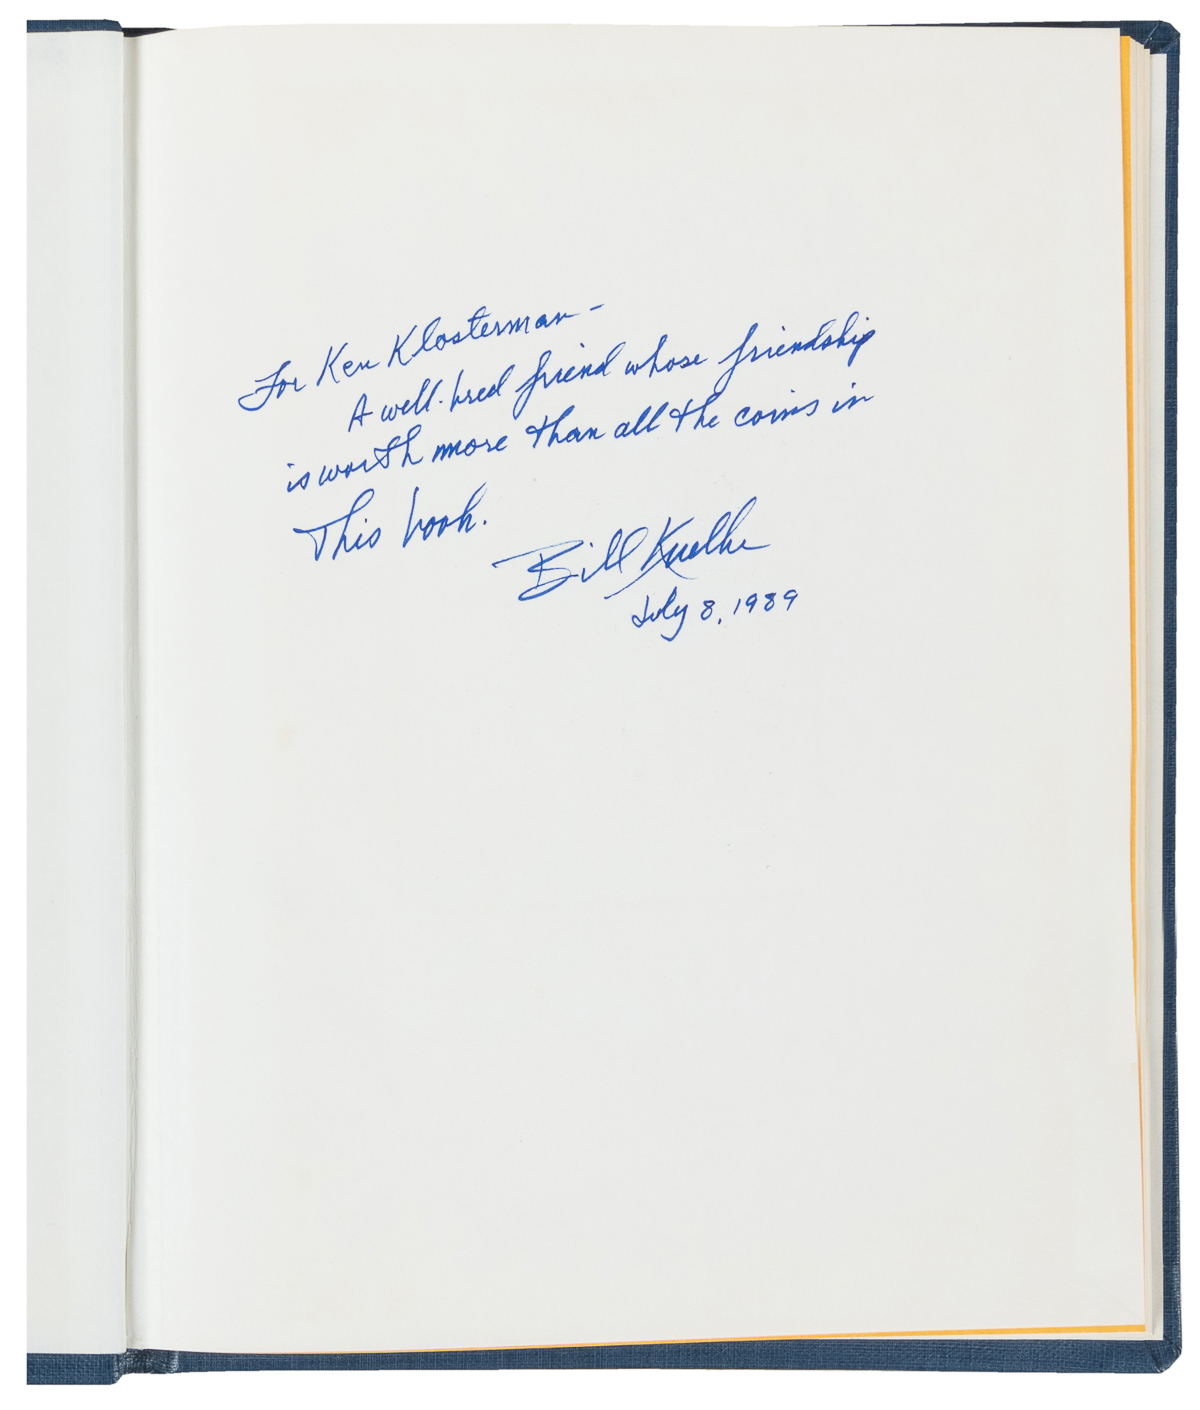 For Ken Klosterman –
A well-bred friend whose friendship
is worth more than all the coins in
This book.
Bill
July 8, 1989